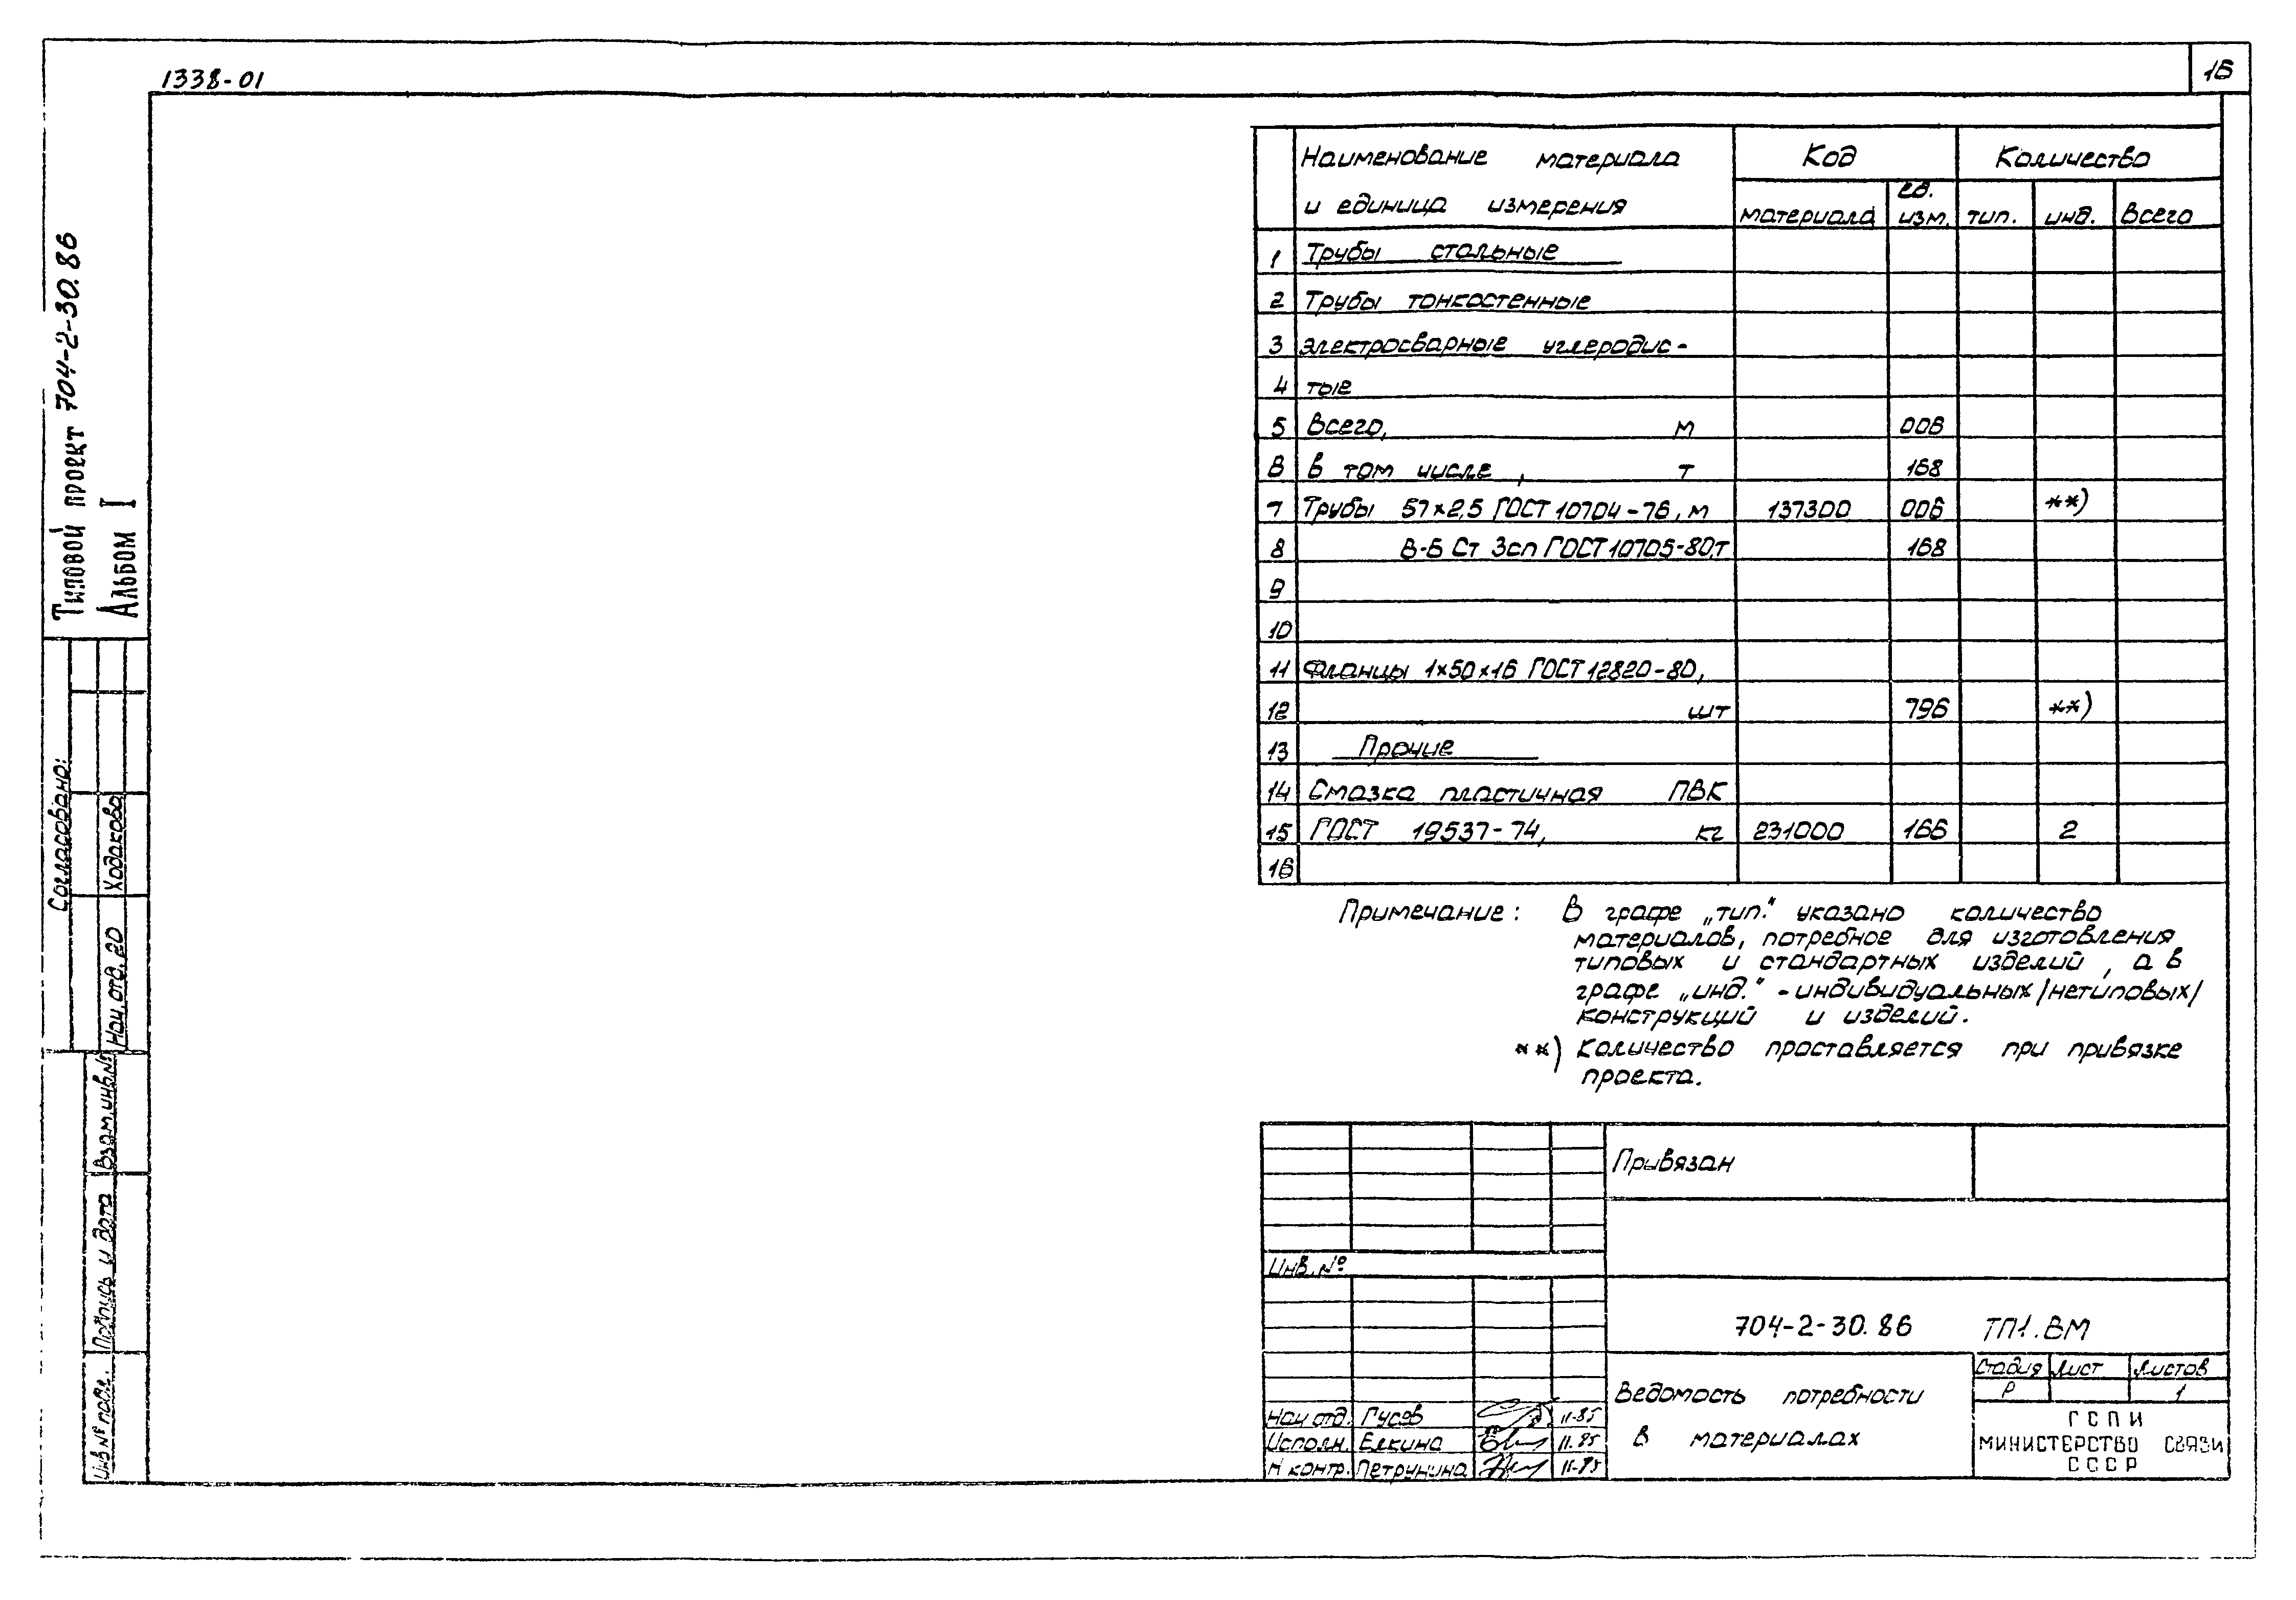 1338-01
16
Типовой проект 704-2-30.86
Альбом I
Согласовано:
Нач.отд.20 Ходакова
Взам.инв.№
Подпись и дата
Инв.№ подл.
Наименование материала и единица измерения | Код | Количество
материала | ед. изм. | тип. | инд. | Всего
1 Трубы стальные
2 Трубы тонкостенные
3 электросварные углеродис-
4 тые
5 Всего, м 006
6 в том числе, т 168
7 Трубы 57×2,5 ГОСТ 10704-76, м 137300 006 **)
8 В-Б Ст 3сп ГОСТ 10705-80, т 168
9
10
11 Фланцы 1×50×16 ГОСТ 12820-80,
12 шт 796 **)
13 Прочие
14 Смазка пластичная ПВК
15 ГОСТ 19537-74, кг 231000 166 2
16
Примечание: В графе „тип." указано количество
материалов, потребное для изготовления
типовых и стандартных изделий, а в
графе „инд." - индивидуальных/нетиповых/
конструкций и изделий.
**) Количество проставляется при привязке
проекта.
Привязан
Инв.№
704-2-30.86 ТП1.ВМ
Ведомость потребности
в материалах
Стадия Лист Листов
Р 1
ГСПИ
МИНИСТЕРСТВО СВЯЗИ
СССР
Нач отд. Гусев 11-85
Исполн. Елкина 11.85
Н контр. Петрунина 11-85